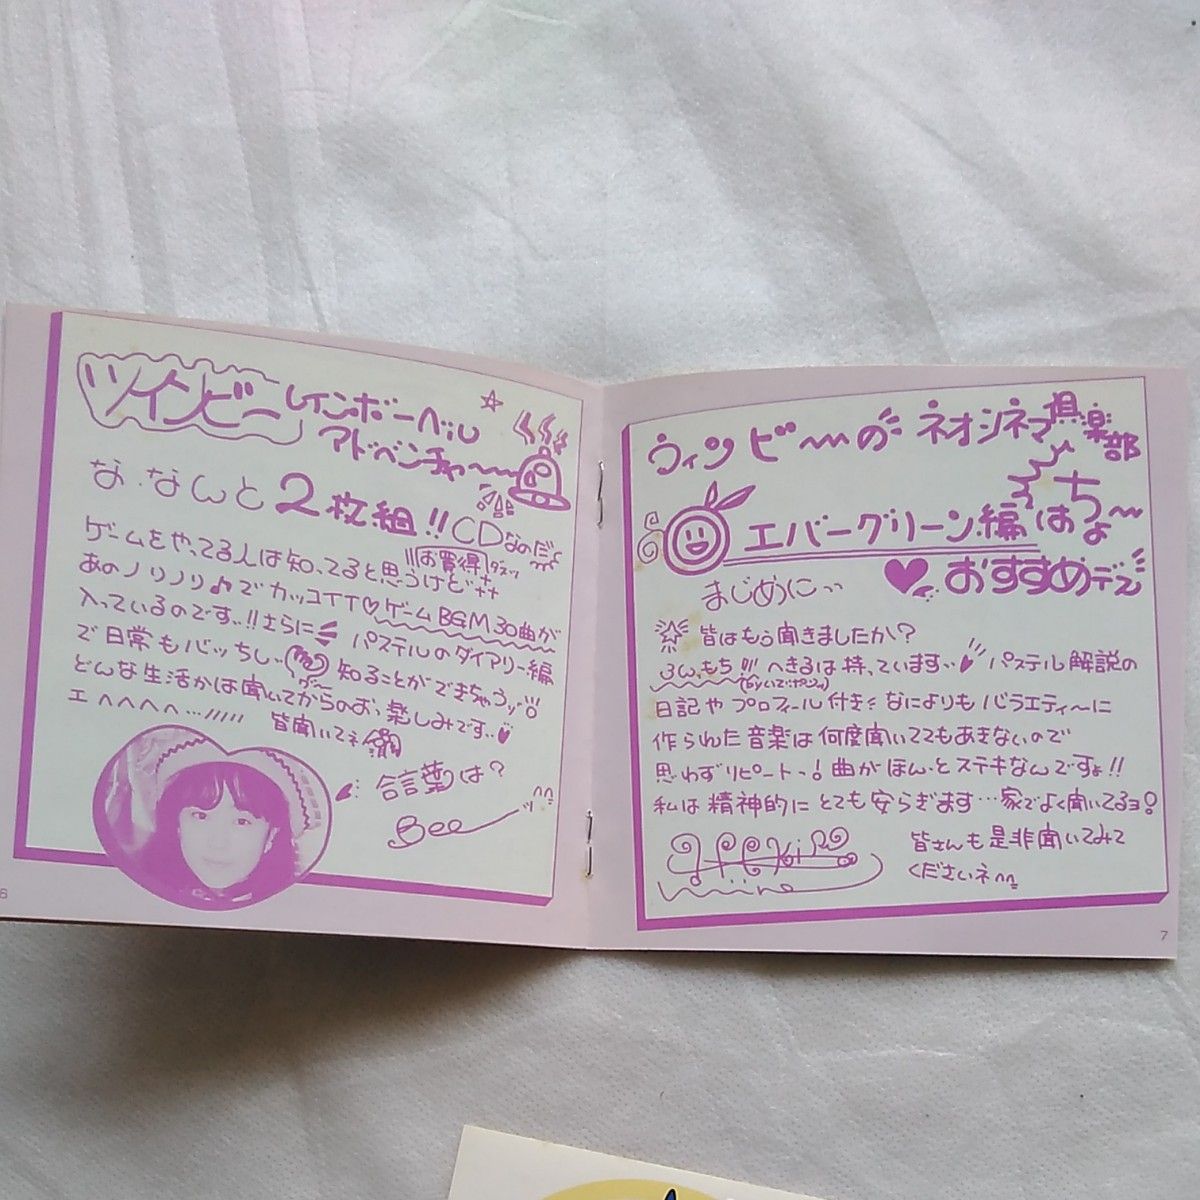 ツインビー
レインボーベル
アドベンチャー
な、なんと2枚組!! CDなのだ
お買得
ゲームをやってる人は知ってると思うけど
あのノリノリ♪でカッコイイ♡ゲームBGM30曲が
入っているのです..!!さらに パステルのダイアリー編
で日常もバッちし.. 知ることができちゃうッ!!
どんな生活かは聞いてからのお楽しみです..
エヘヘヘ…
皆聞いてネ
合言葉は?
Bee
6
ウィンビーのネオシネマ倶楽部
エバーグリーン編はちょ〜
まじめに…
♥おすすめデス
皆はもう聞きましたか?
ふん、もち!!! へきるは持っています.. パステル解説の
日記やプロフィール付き なによりもバラエティ〜に
作られた音楽は何度聞いててもあきないので
思わずリピートっ!曲がほんとステキなんですょ!!
私は精神的にとても安らぎます…家でよく聞いてるヨ!
皆さんも是非聞いてみて
くださいネ^^
7